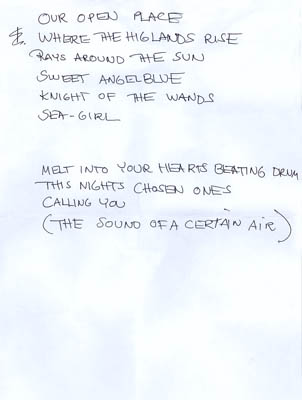 OUR OPEN PLACE
& WHERE THE HIGLANDS RISE
RAYS AROUND THE SUN
SWEET ANGELBLUE
KNIGHT OF THE WANDS
SEA-GIRL
MELT INTO YOUR HEARTS BEATING DRUM
THIS NIGHTS CHOSEN ONES
CALLING YOU
(THE SOUND OF A CERTAIN AIR)